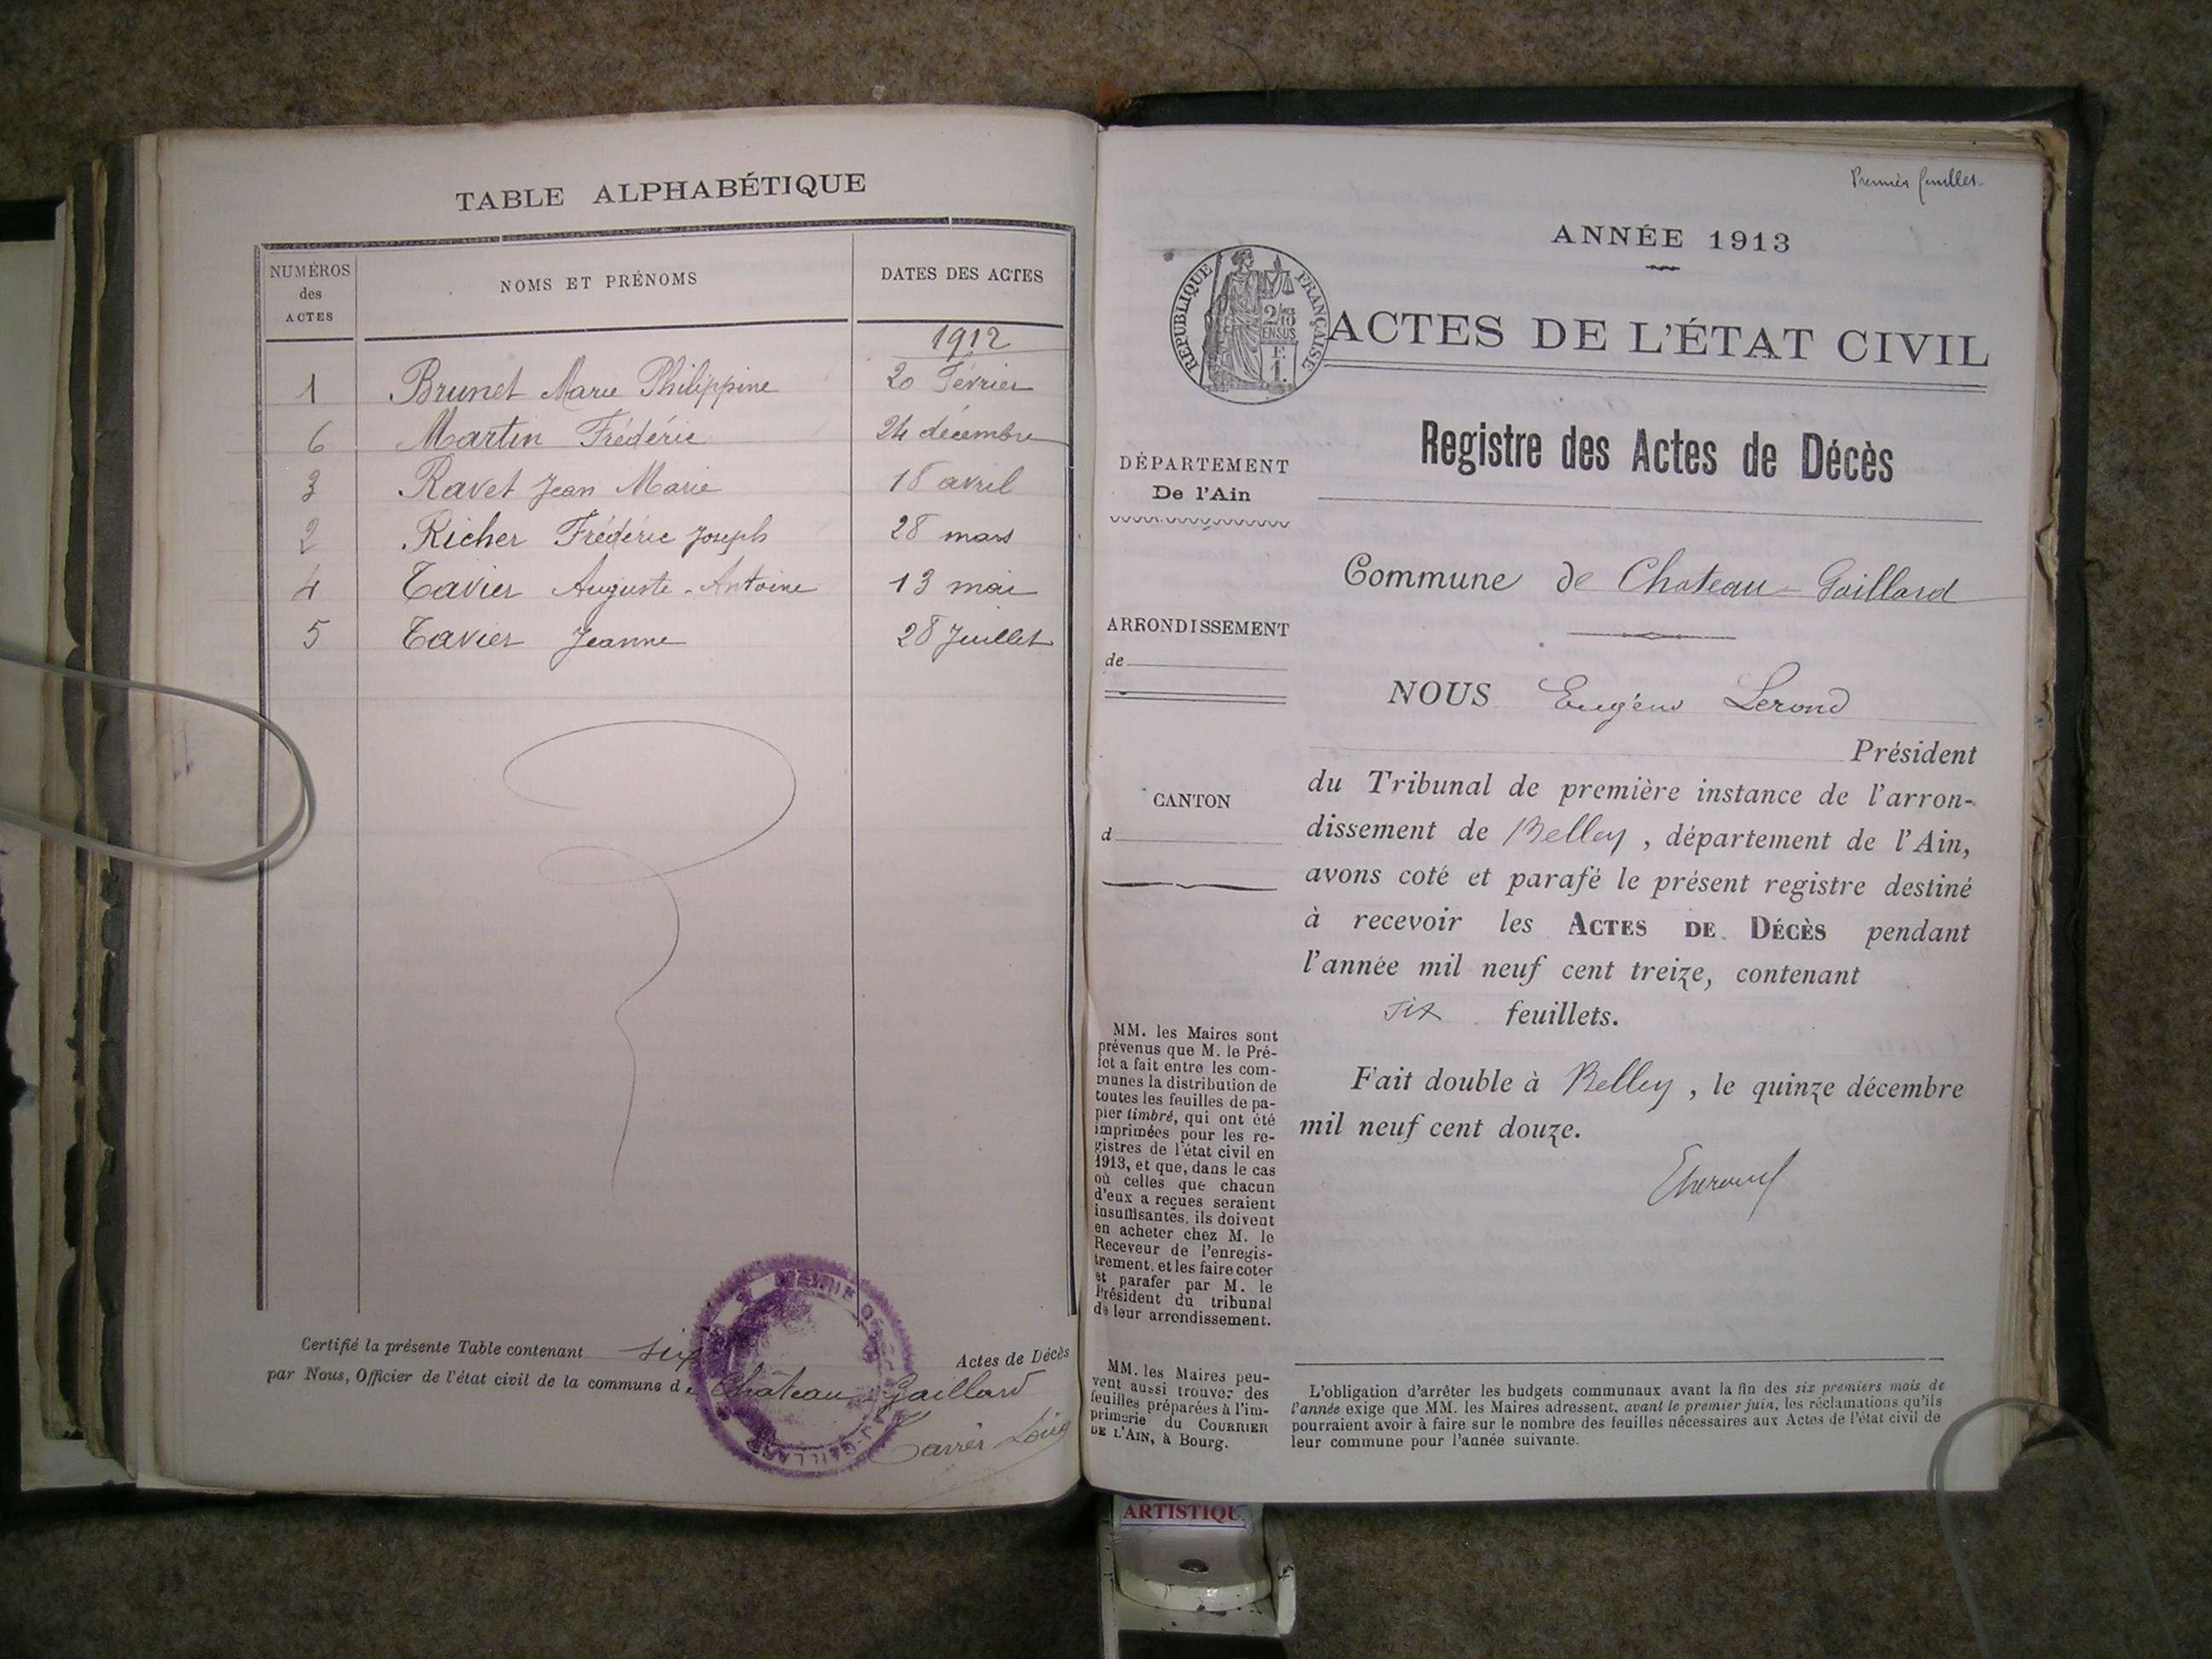 TABLE ALPHABÉTIQUE
NUMÉROS
des
ACTES
NOMS ET PRÉNOMS
DATES DES ACTES
1912
1 Brunet Marie Philippine 20 Février
6 Martin Frédéric 24 décembre
3 Ravet Jean Marie 18 avril
2 Richer Frédéric Joseph 28 mars
4 Tavier Auguste-Antoine 13 mai
5 Tavier Jeanne 28 Juillet
Certifié la présente Table contenant six Actes de Décès
par Nous, Officier de l'état civil de la commune de Château-Gaillard
Premier feuillet
ANNÉE 1913
RÉPUBLIQUE FRANÇAISE
ACTES DE L'ÉTAT CIVIL
Registre des Actes de Décès
DÉPARTEMENT
De l'Ain
Commune de Chateau-Gaillard
ARRONDISSEMENT
de
NOUS Eugène Lerond
Président
CANTON
d
du Tribunal de première instance de l'arron-
dissement de Belley, département de l'Ain,
avons coté et parafé le présent registre destiné
à recevoir les ACTES DE DÉCÈS pendant
l'année mil neuf cent treize, contenant
six feuillets.
Fait double à Belley, le quinze décembre
mil neuf cent douze.
MM. les Maires sont
prévenus que M. le Pré-
fet a fait entre les com-
munes la distribution de
toutes les feuilles de pa-
pier timbré, qui ont été
imprimées pour les re-
gistres de l'état civil en
1913, et que, dans le cas
où celles que chacun
d'eux a reçues seraient
insuffisantes, ils doivent
en acheter chez M. le
Receveur de l'enregis-
trement, et les faire coter
et parafer par M. le
Président du tribunal
de leur arrondissement.
MM. les Maires peu-
vent aussi trouver des
feuilles préparées à l'im-
primerie du COURRIER
DE L'AIN, à Bourg.
L'obligation d'arrêter les budgets communaux avant la fin des six premiers mois de
l'année exige que MM. les Maires adressent, avant le premier juin, les réclamations qu'ils
pourraient avoir à faire sur le nombre des feuilles nécessaires aux Actes de l'état civil de
leur commune pour l'année suivante.
ARTISTIQU